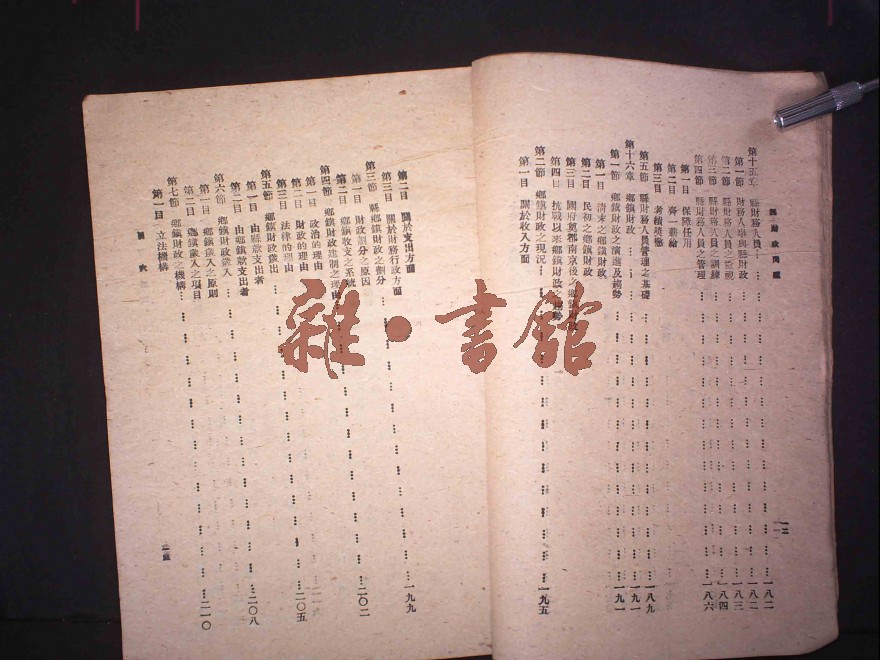 縣財政問題
第十五章 縣財務人員 一八二
第一節 財務人員與縣財政 一八二
第二節 縣財務人員之 一八三
第三節 縣財務人員之訓練 一八四
第四節 縣財務人員之管理 一八六
第一目 保障任用
第二目 齊一薪給
第三目 考績獎懲
第五節 縣財務人員管理之基礎 一八九
第十六章 鄉鎮財政 一九一
第一節 鄉鎮財政之演進及趨勢 一九一
第一目 清末之鄉鎮財政
第二目 民初之鄉鎮財政
第三目 國府奠都南京後之鄉鎮財政
第四目 抗戰以來鄉鎮財政之趨勢
第二節 鄉鎮財政之現況 一九五
第一目 關於收入方面
第二目 關於支出方面
第三目 關於財務行政方面 一九九
第三節 縣鄉鎮財政之劃分
第一目 財政劃分之原因
第二目 鄉鎮收支之系統 二〇二
第四節 鄉鎮財政建制之理由
第一目 政治的理由
第二目 財政的理由
第三目 法律的理由 二〇五
第五節 鄉鎮財政歲出
第一目 由縣款支出者
第二目 由鄉鎮款支出者 二〇八
第六節 鄉鎮財政歲入
第一目 鄉鎮歲入之原則
第二目 鄉鎮歲入之項目
第七節 鄉鎮財政之機構 二一〇
第一目 立法機構
目 次
雜·書館